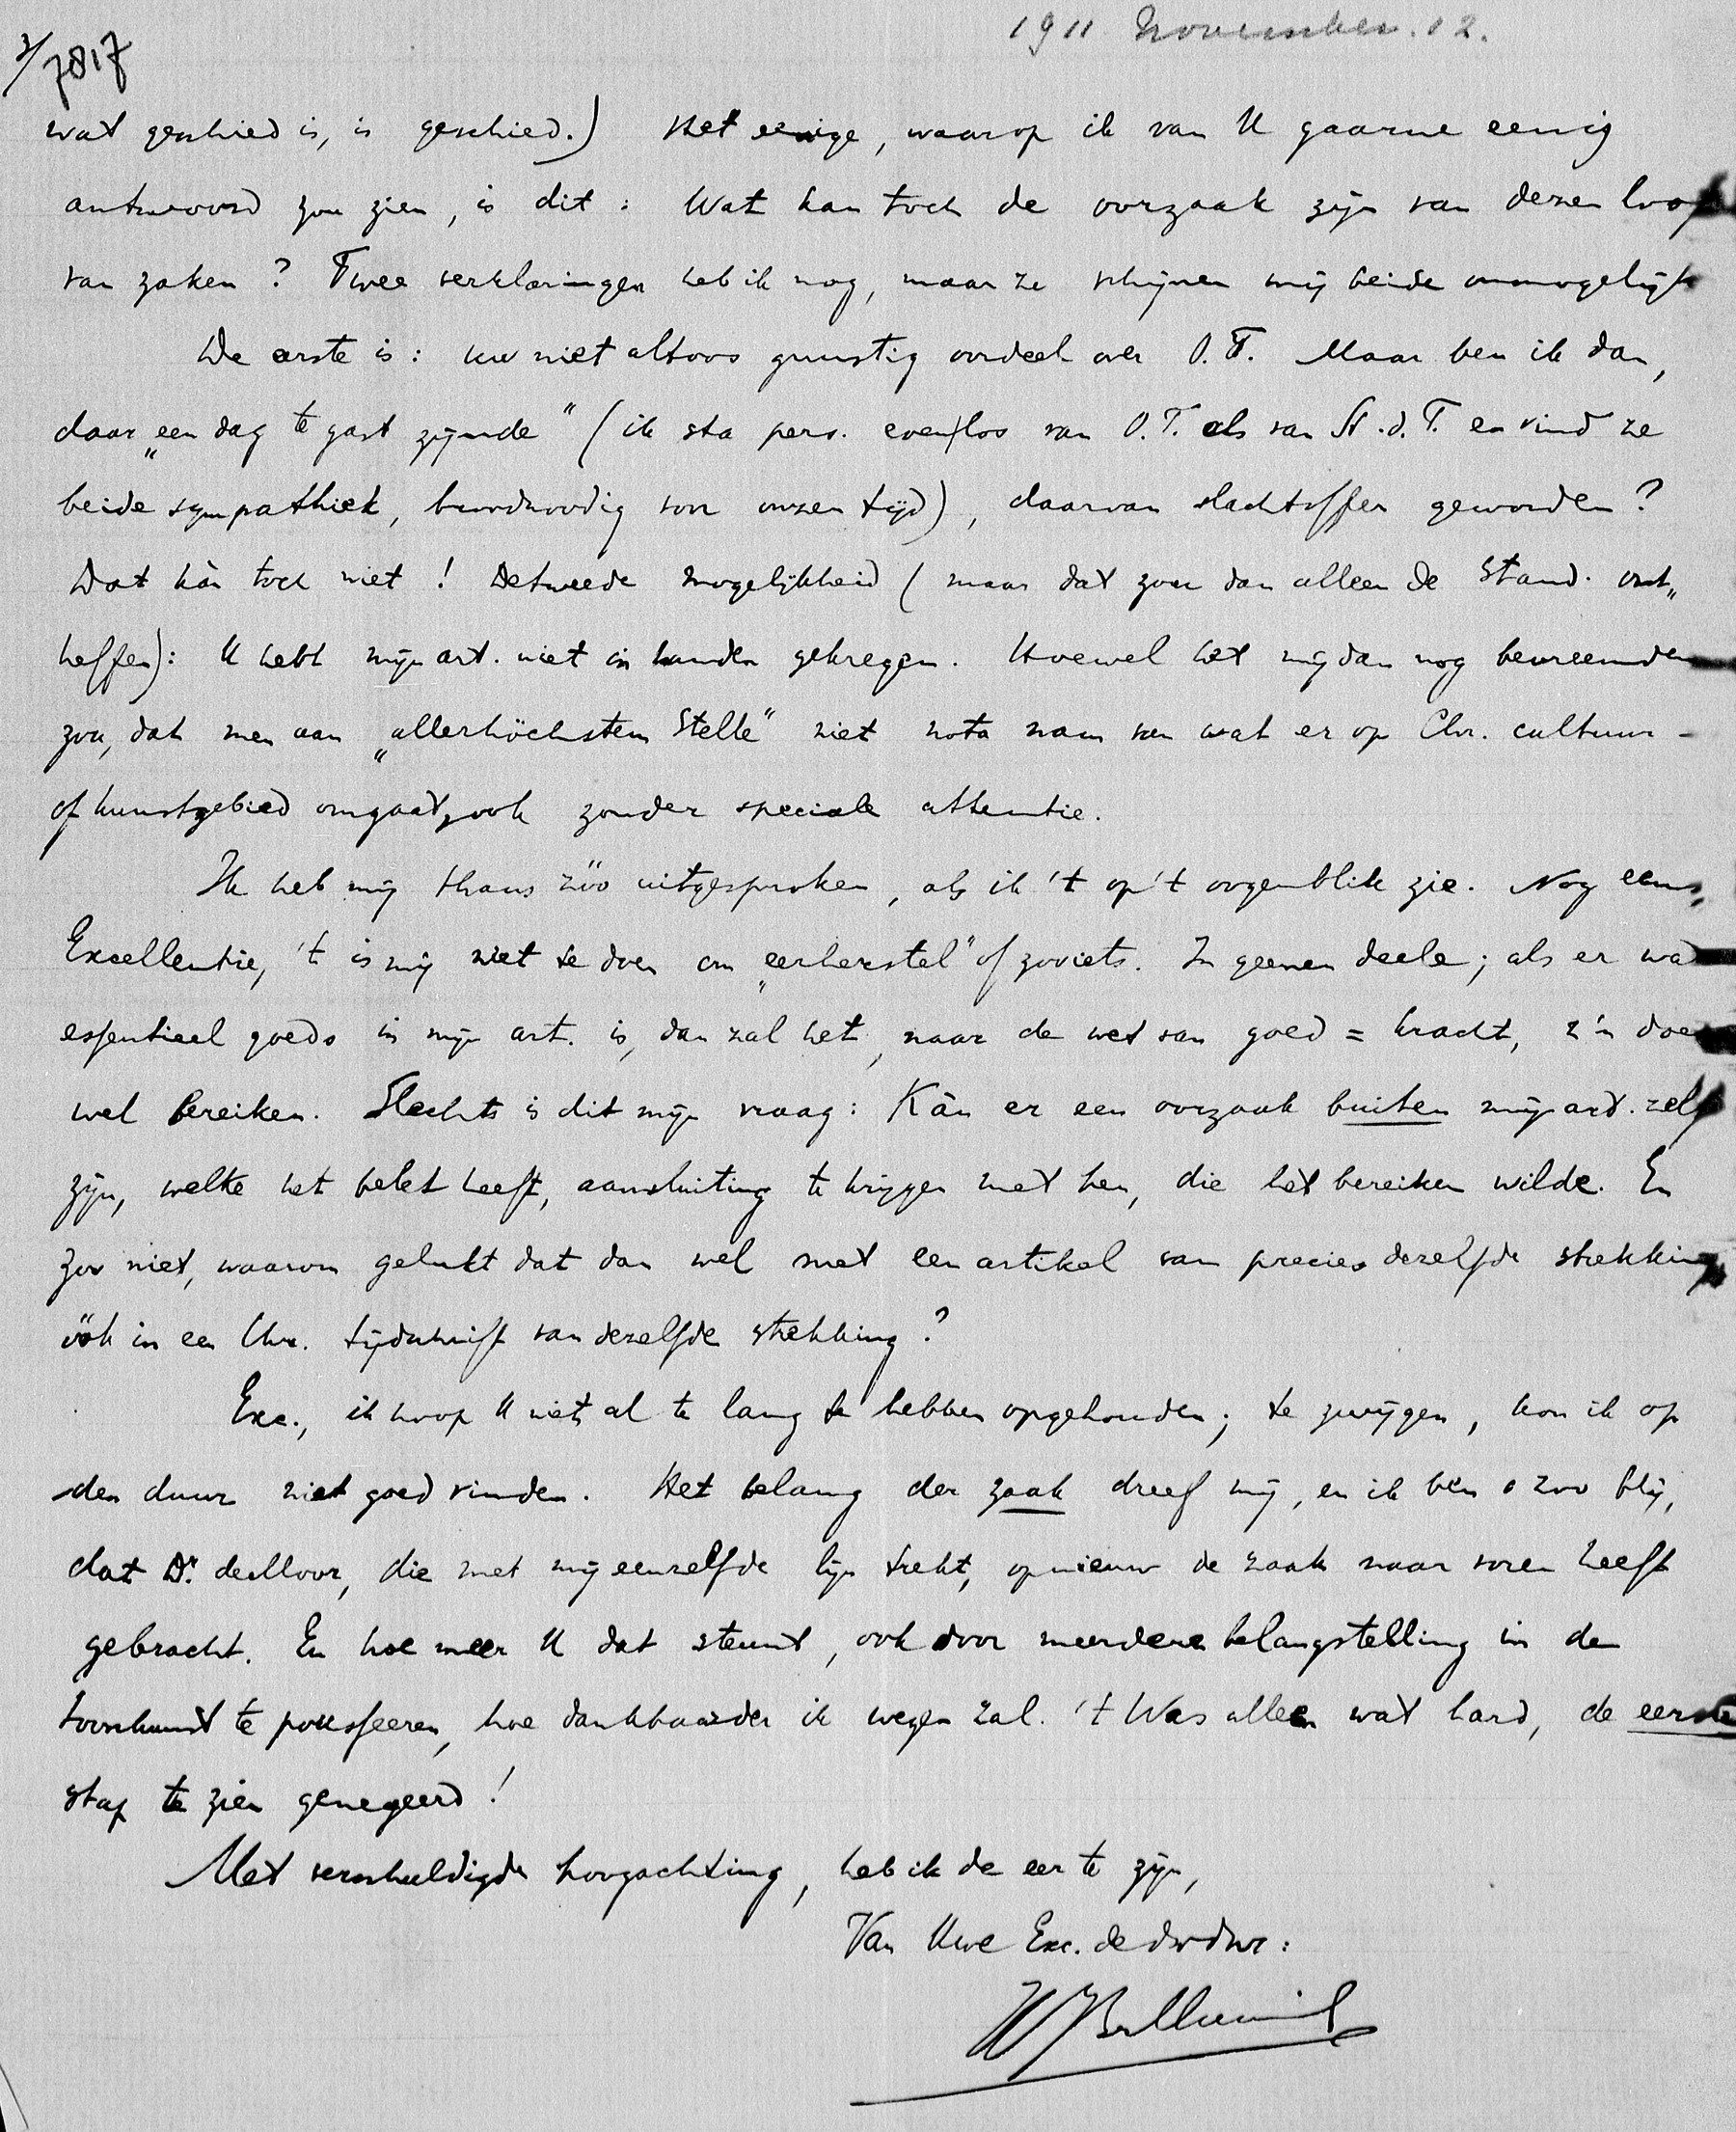 1911 November. 12.
3/7817
wat geschied is, is geschied.) Het eenige, waarop ik van U gaarne eenig
antwoord zou zien, is dit: Wat kan toch de oorzaak zijn van dezen loop
van zaken? Twee verklaringen heb ik nog, maar ze schijnen mij beide onmogelijk
De eerste is: uw niet altoos gunstig oordeel over O.T. Maar ben ik dan,
daar „een dag te gast zijnde" (ik sta pers. even los van O.T. als van St.d.T. en vind ze
beide sympathiek, broodnoodig voor onzen tijd), daarvan slachtoffer geworden?
Dat kàn toch niet! De tweede mogelijkheid (maar dat zou dan alleen de Stand. ont„
heffen): U hebt mijn art. niet in handen gekregen. Hoewel het mij dan nog bevreemden
zou, dat men aan „allerhöchstem Stelle" niet nota nam van wat er op Chr. cultuur-
of kunstgebied omgaat, ook zonder speciale attentie.
Ik heb mij thans zóó uitgesproken, als ik 't op 't oogenblik zie. Nog eens,
Excellentie, 't is mij niet te doen om „eerherstel" of zooiets. In geenen deele; als er wat
essentieel goeds in mijn art. is, dan zal het, naar de wet van goed = kracht, z'n doel
wel bereiken. Slechts is dit mijn vraag: Kàn er een oorzaak buiten mijn art. zelf
zijn, welke het belet heeft, aansluiting te krijgen met hen, die het bereiken wilde. En
zoo niet, waarom gelukt dat dan wel met een artikel van precies dezelfde strekking
óók in een Chr. tijdschrift van dezelfde strekking?
Exc., ik hoop U niet al te lang te hebben opgehouden; te zwijgen, kon ik op
den duur niet goed vinden. Het belang der zaak dreef mij, en ik ben o zoo blij,
dat Dr. de Moor, die met mij eenzelfde lijn trekt, opnieuw de zaak naar voren heeft
gebracht. En hoe meer U dat steunt, ook door meerdere belangstelling in de
toonkunst te pousseeren, hoe dankbaarder ik wezen zal. 't Was alleen wat hard, de eerste
stap te zien genegeerd!
Met verschuldigde hoogachting, heb ik de eer te zijn,
Van Uwe Exc. de dwdwr: